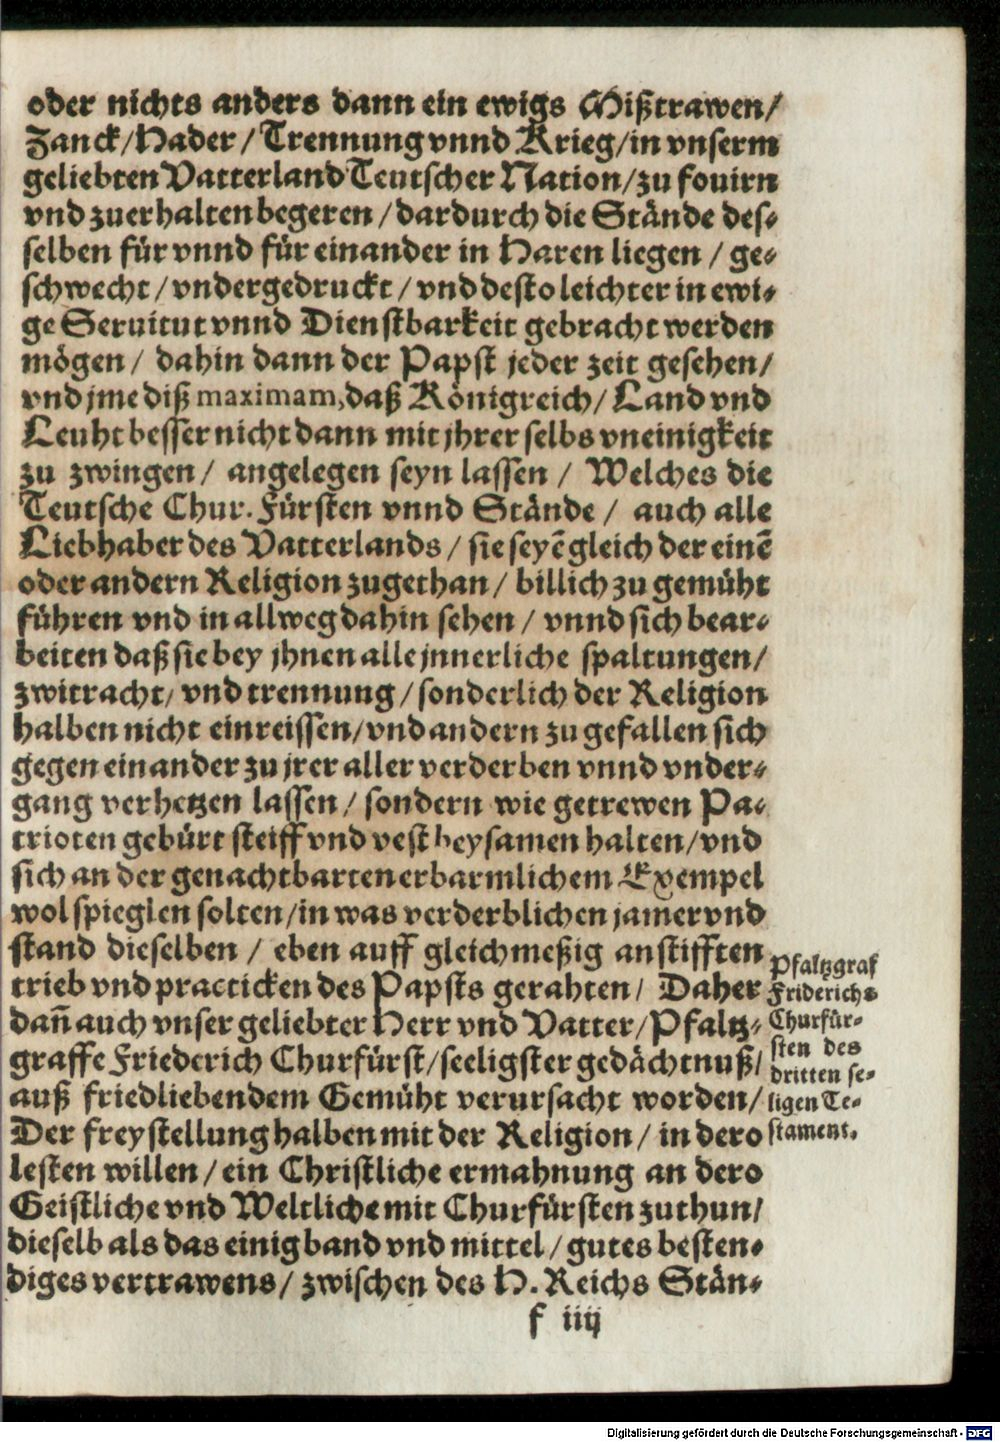 oder nichts anders dann ein ewigs Mißtrawen/
Zanck/Hader/Trennung vnnd Krieg/in vnserm
geliebten Vatterland Teutscher Nation/zu fouirn
vnd zuerhalten begeren/dardurch die Stände des⸗
selben für vnnd für einander in Haren liegen/ge⸗
schwecht/vndergedruckt/vnd desto leichter in ewi⸗
ge Seruitut vnnd Dienstbarkeit gebracht werden
mögen/ dahin dann der Papst jeder zeit gesehen/
vnd jme diß maximam, daß Königreich/Land vnd
Leuht besser nicht dann mit jhrer selbs vneinigkeit
zu zwingen/ angelegen seyn lassen/ Welches die
Teutsche Chur. Fürsten vnnd Stände/ auch alle
Liebhaber des Vatterlands/sie seyẽ gleich der einẽ
oder andern Religion zugethan/billich zu gemüht
führen vnd in allweg dahin sehen/vnnd sich bear⸗
beiten daß sie bey jhnen alle jnnerliche spaltungen/
zwitracht/vnd trennung/sonderlich der Religion
halben nicht einreissen/vnd andern zu gefallen sich
gegen einander zu jrer aller verderben vnnd vnder⸗
gang verhetzen lassen/ sondern wie getrewen Pa⸗
trioten gebürt steiff vnd vest beysamen halten/vnd
sich an der genachtbarten erbarmlichem Exempel
wol spieglen solten/in was verderblichen jamer vnd
stand dieselben/ eben auff gleichmeßig anstifften
trieb vnd practicken des Papsts gerahten/ Daher
dañ auch vnser geliebter Herr vnd Vatter/Pfaltz⸗
graffe Friederich Churfürst/seeligster gedächtnuß/
auß friedliebendem Gemüht verursacht worden/
Der freystellung halben mit der Religion/in dero
lesten willen/ein Christliche ermahnung an dero
Geistliche vnd Weltliche mit Churfürsten zuthun/
dieselb als das einig band vnd mittel/gutes besten⸗
diges vertrawens/ zwischen des H. Reichs Stän⸗
f iiij
Pfaltzgraf
Friderichs
Churfür⸗
sten des
dritten se⸗
ligen Te⸗
stament.
Digitalisierung gefördert durch die Deutsche Forschungsgemeinschaft - DFG